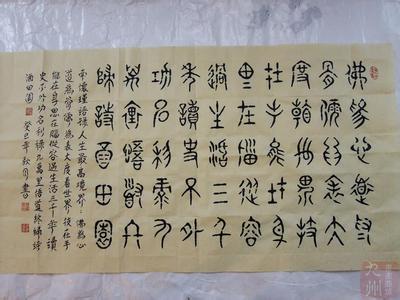 佛為心道為
骨儒為表大
度看世界技
在手能在身
思在腦從容
過生活三千
年讀史不外
功名利祿九
萬里悟道終
歸詩酒田園
南懷瑾語錄人生最高境界：佛為心
道為骨儒為表大度看世界技在手
能在身思在腦從容過生活三千年讀
史不外功名利祿九萬里悟道終歸詩
酒田園 癸巳年秋月書
九州